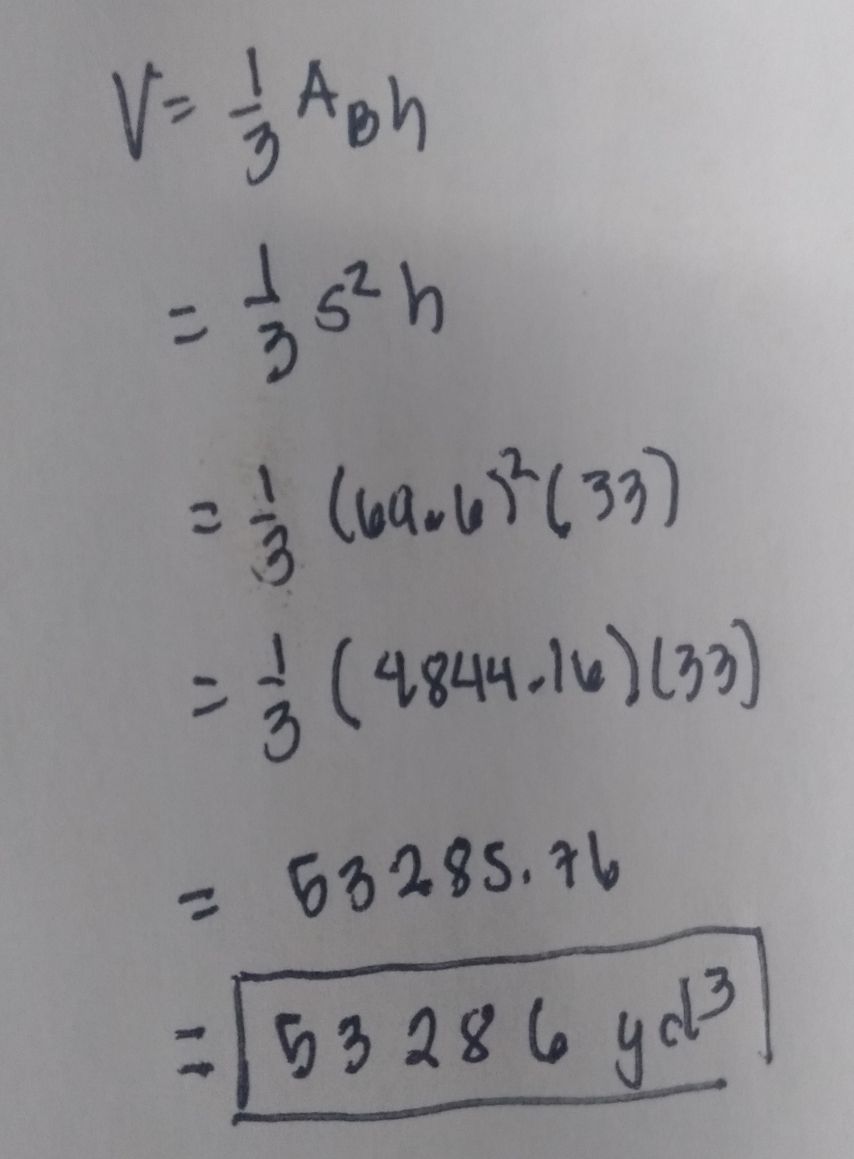 V = 1/3 A_B h
= 1/3 s² h
= 1/3 (69.6)² (33)
= 1/3 (4844.16)(33)
= 53285.76
= 53286 yd³